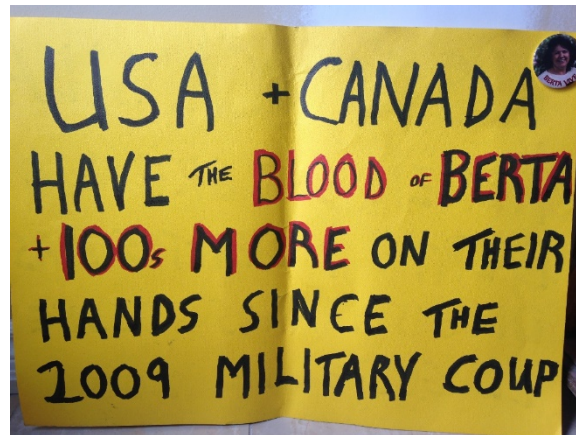 USA + CANADA
HAVE THE BLOOD OF BERTA
+ 100s MORE ON THEIR
HANDS SINCE THE
2009 MILITARY COUP
BERTA